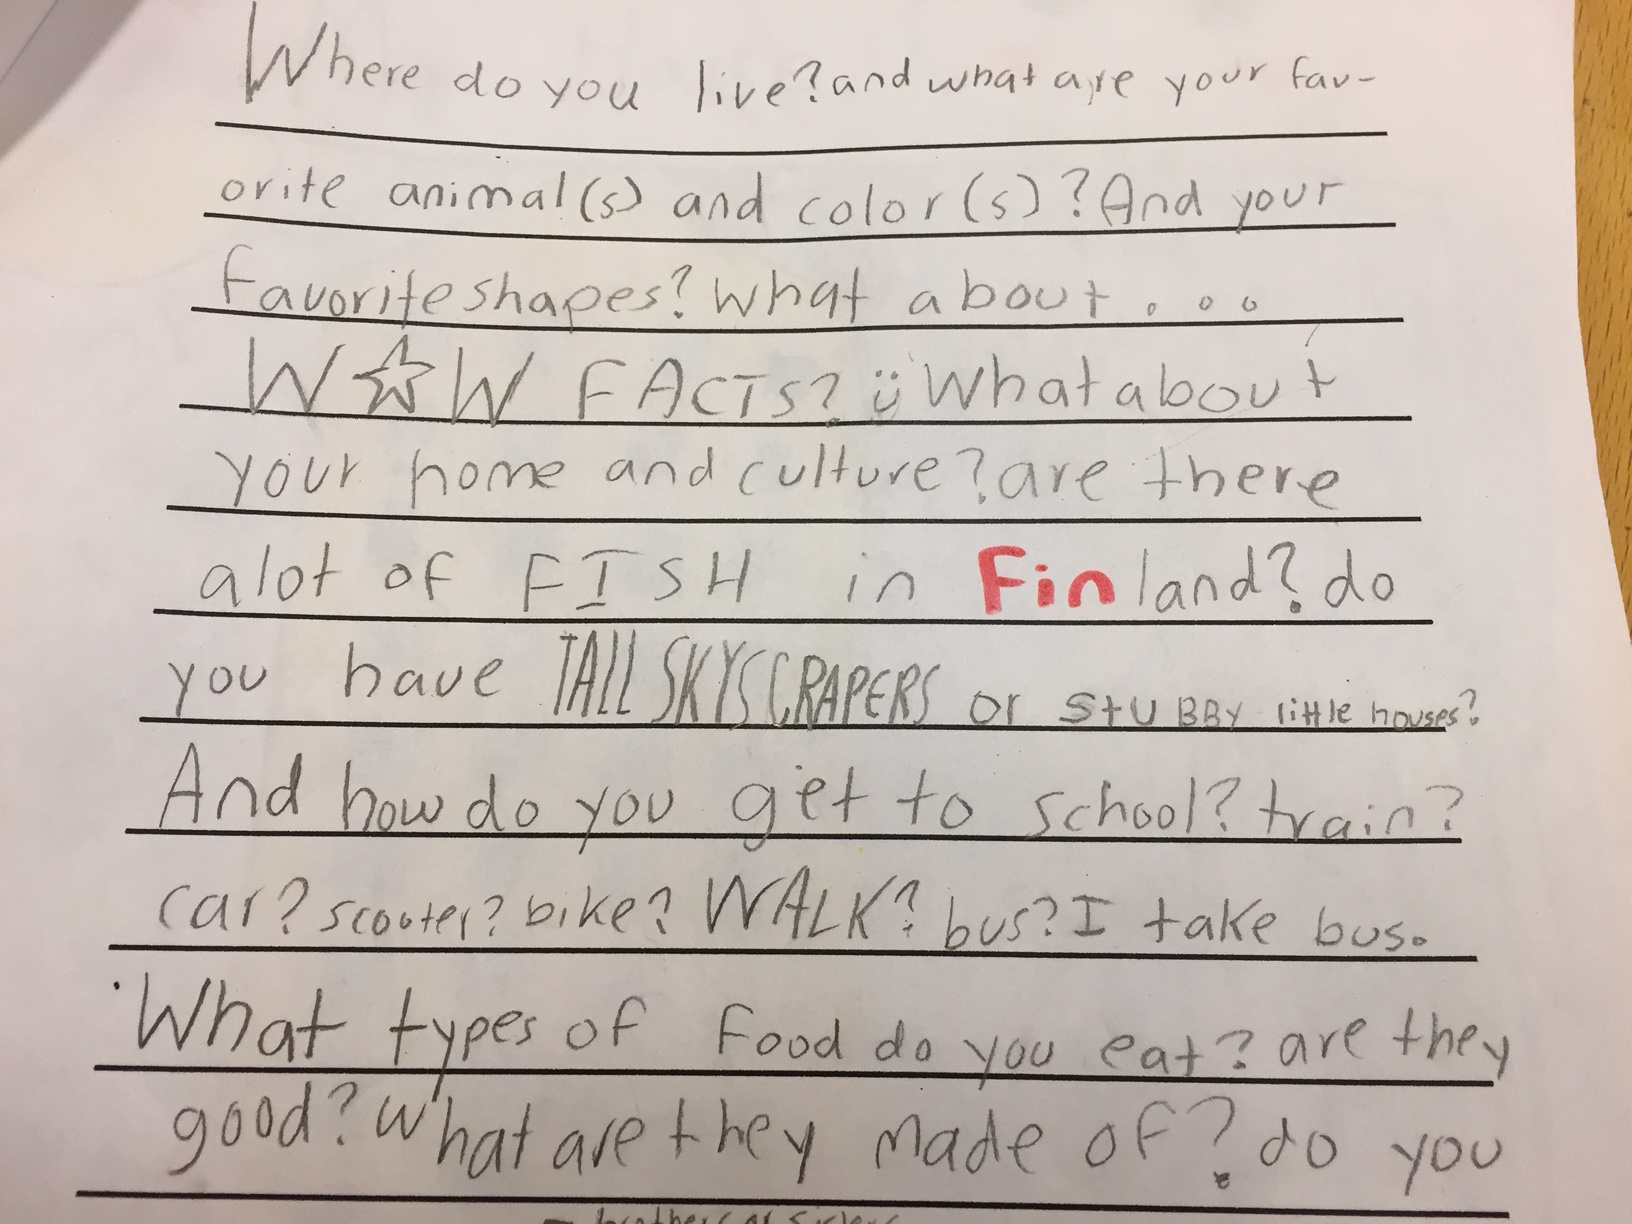 Where do you live? and what are your fav-
orite animal(s) and color(s)? And your
favorite shapes? What about . . .
W☆W FACTS? ü What about
your home and culture? are there
alot of FISH in Finland? do
you have TALL SKYSCRAPERS or stUBBY little houses?
And how do you get to school? train?
car? scooter? bike? WALK? bus? I take bus.
What types of Food do you eat? are they
good? What are they made of? do you
brothers or sisters